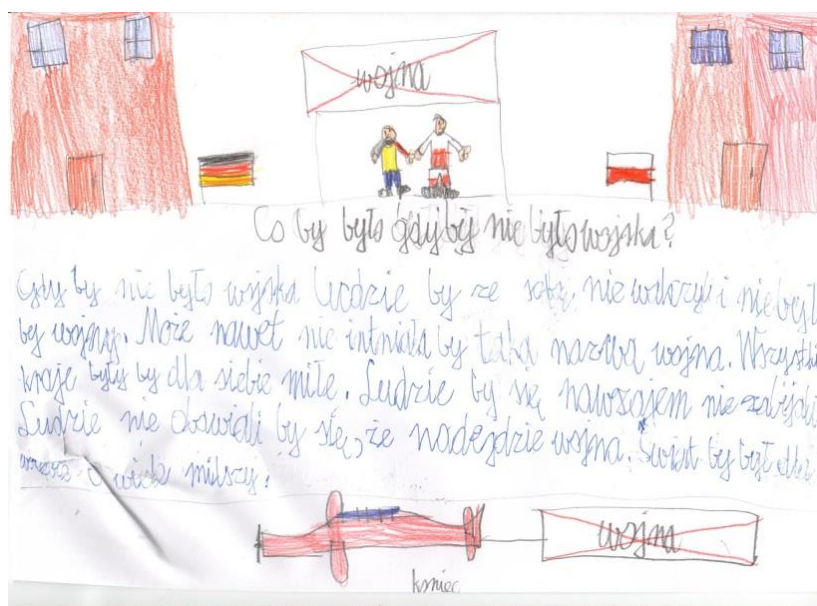 wojna
Co by było gdy by nie było wojska?
Gdy by nie było wojska ludzie by ze sobą nie walczyli i nie był
by wojny. Może nawet nie intniała by taka nazwa wojna. Wszystki
kraje były by dla siebie miłe. Ludzie by się nawzajem nie zabijali
Ludzie nie obawiali by się, że nadejdzie wojna. Świat by był
o wiele milszy.
wojna
koniec